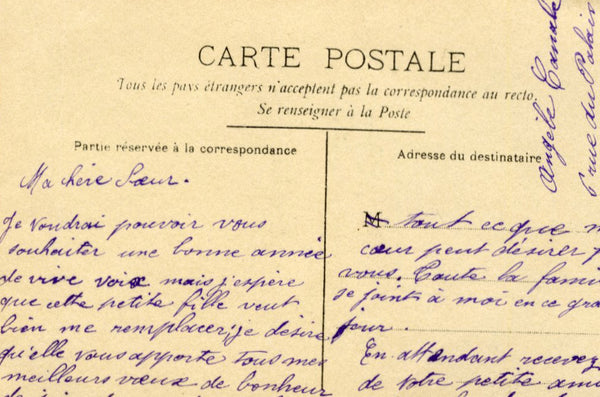 CARTE POSTALE
Tous les pays étrangers n'acceptent pas la correspondance au recto.
Se renseigner à la Poste
Partie réservée à la correspondance
Adresse du destinataire
Ma chère Sœur.
Je voudrai pouvoir vous
souhaiter une bonne année
de vive voix mais j'espère
que cette petite fille veut
bien me remplacer, je désire
qu'elle vous apporte tous mes
meilleurs vœux de bonheur
M tout ce que
cœur peut désirer
vous. Toute la
se joint à moi en ce
jour.
En attendant recevez
de votre petite
Angèle
rue du Palais